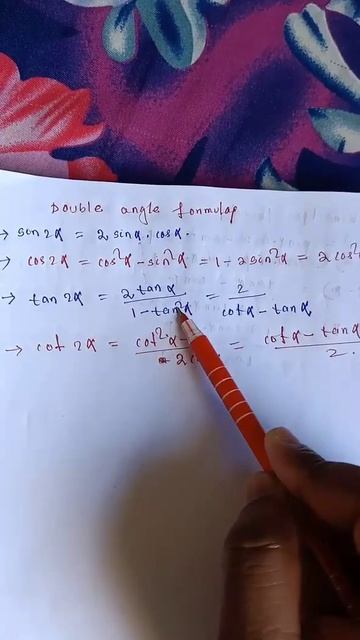 Double angle formulas
→ sin 2α = 2 sinα. cosα.
→ cos 2α = cos²α - sin²α = 1 - 2 sin²α = 2 cos²
→ tan 2α = 2 tan α / 1 - tan²α = 2 / cot α - tan α
→ cot 2α = cot²α - / 2 = cot α - tan α / 2.